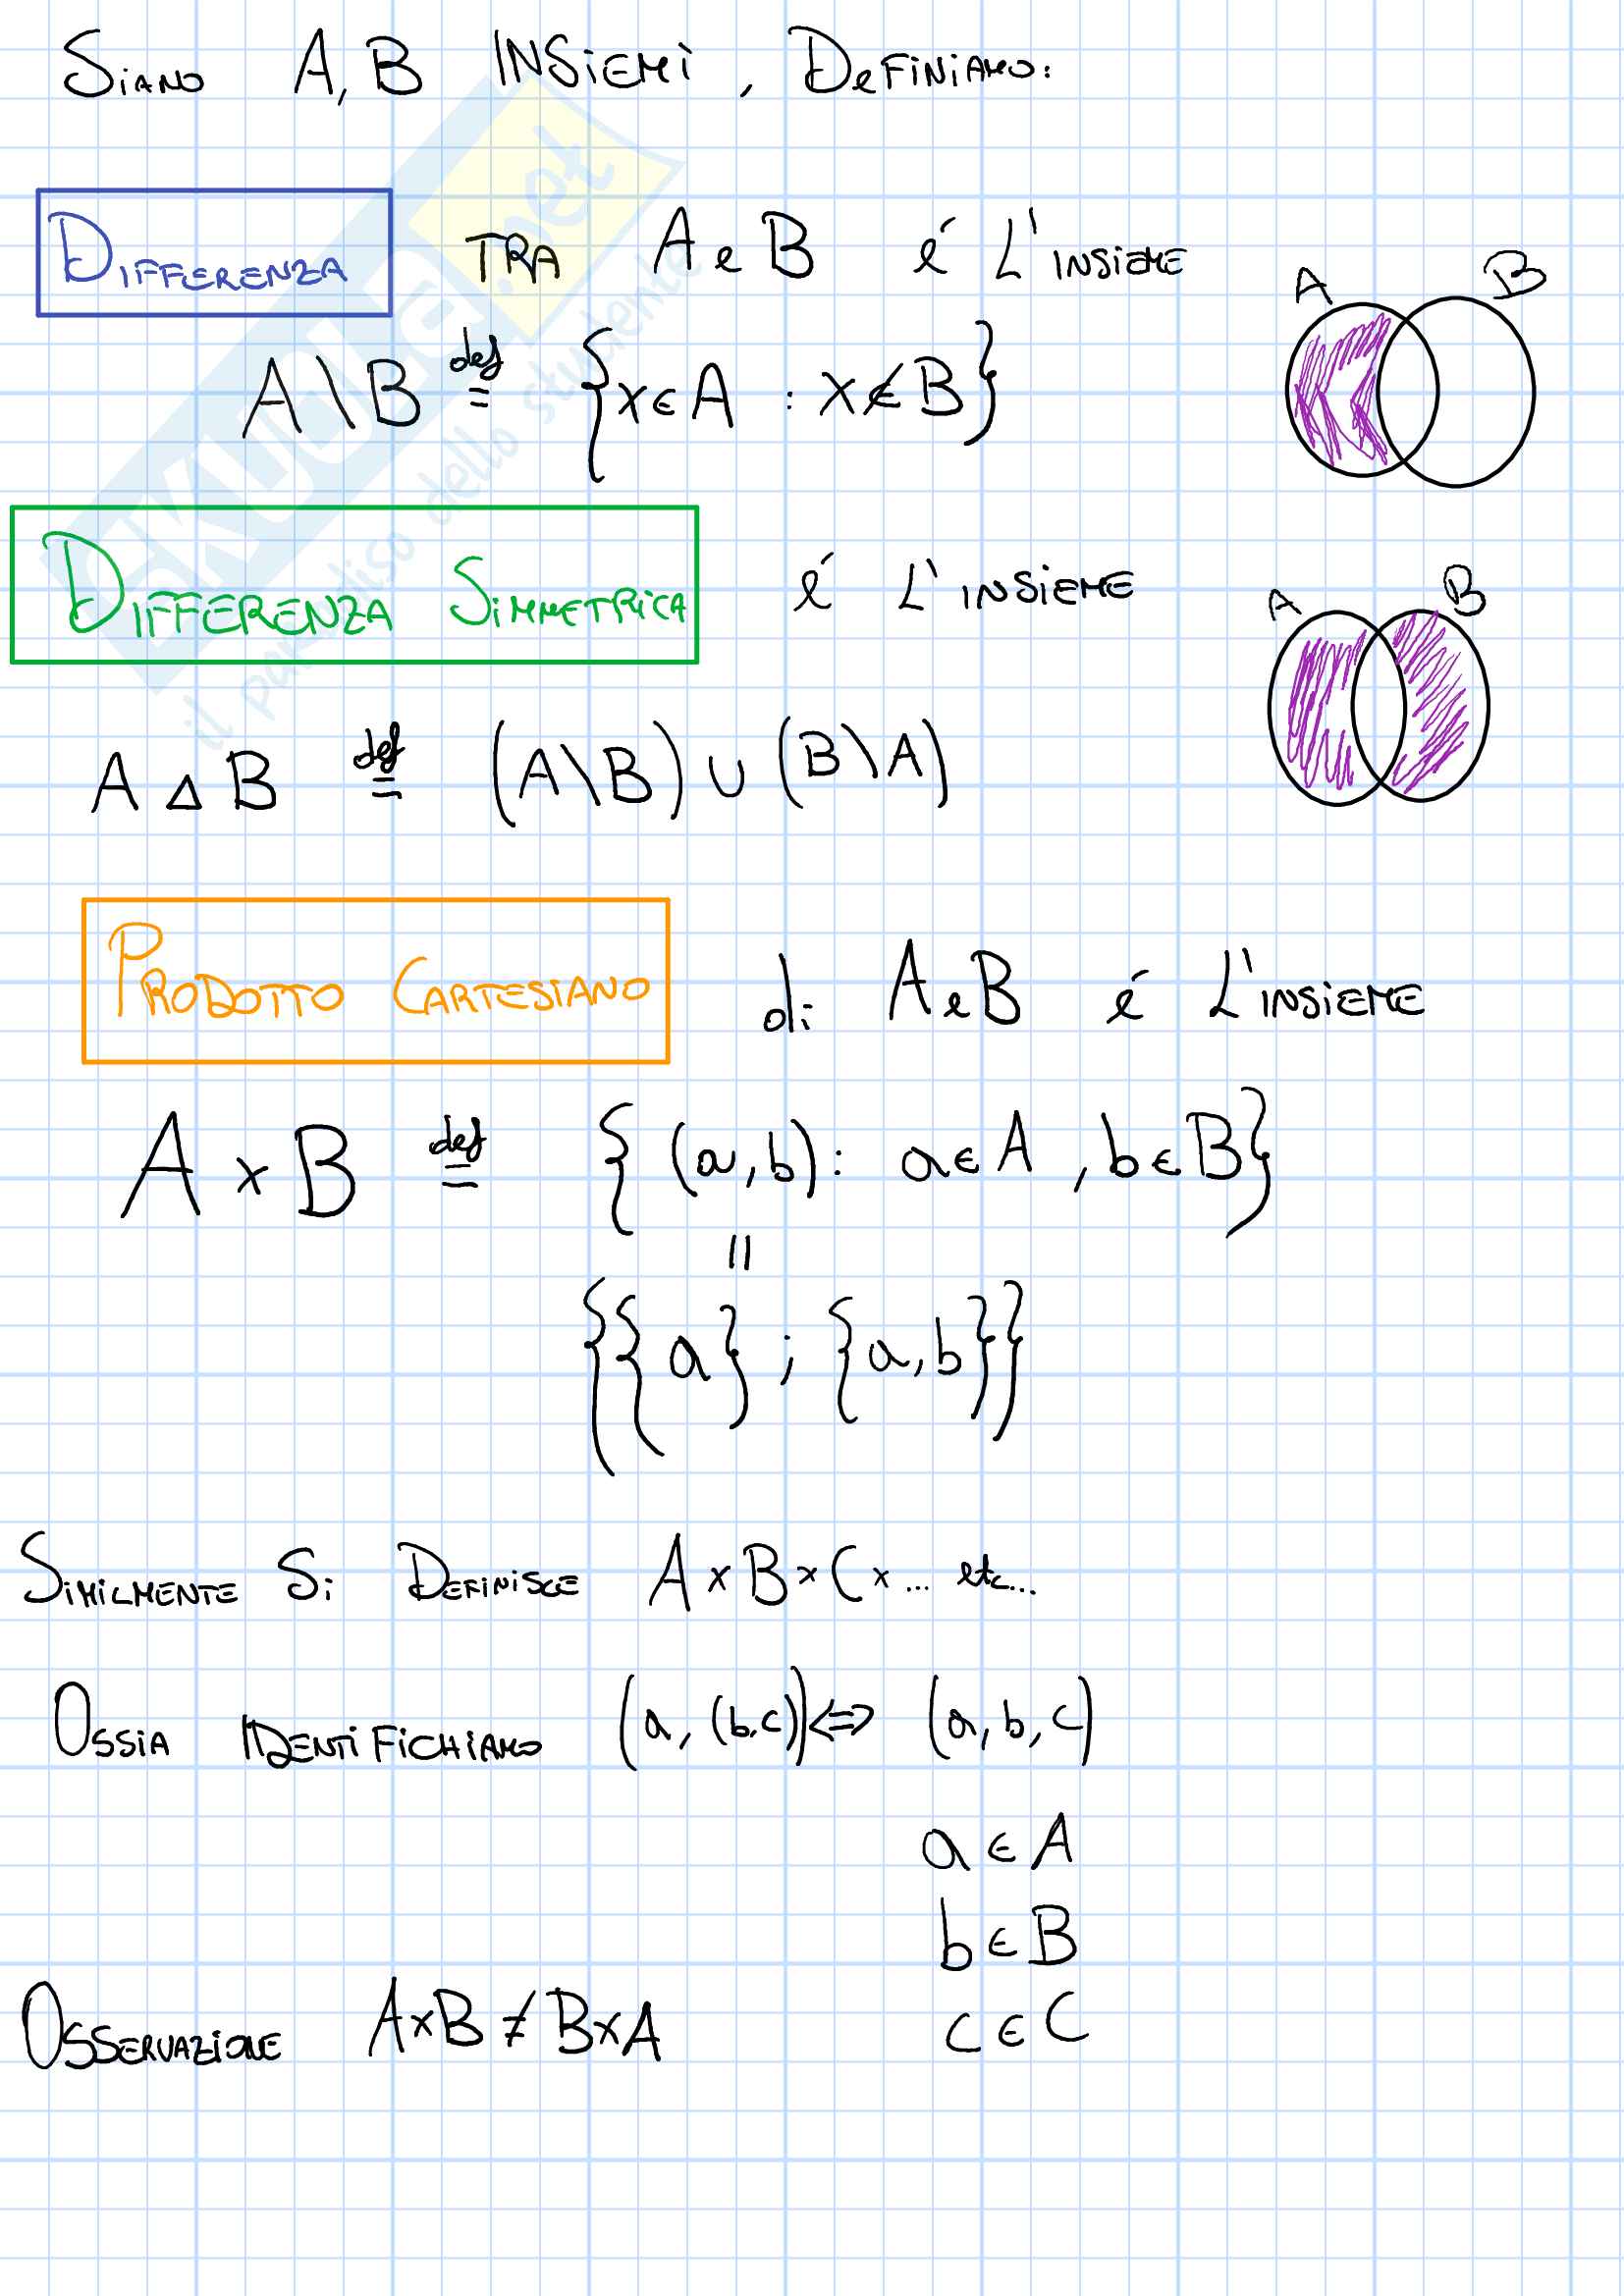 Siano A, B INSiemi, DeFiniamo:
Differenza TRA A e B é L'insieme
A B
A\B def= {x∈A : x∉B}
Differenza Simmetrica é L'insieme
A B
A Δ B def= (A\B) ∪ (B\A)
Prodotto Cartesiano di A e B é L'insieme
A × B def= { (a,b): a∈A , b∈B}
=
{{a} ; {a,b}}
Similmente Si Definisce A×B×C×... etc...
Ossia identiFichiamo (a, (b,c)) <=> (a, b, c)
a ∈ A
b ∈ B
Osservazione A×B ≠ B×A
c ∈ C
SKUOLA.net
il paradiso dello studente